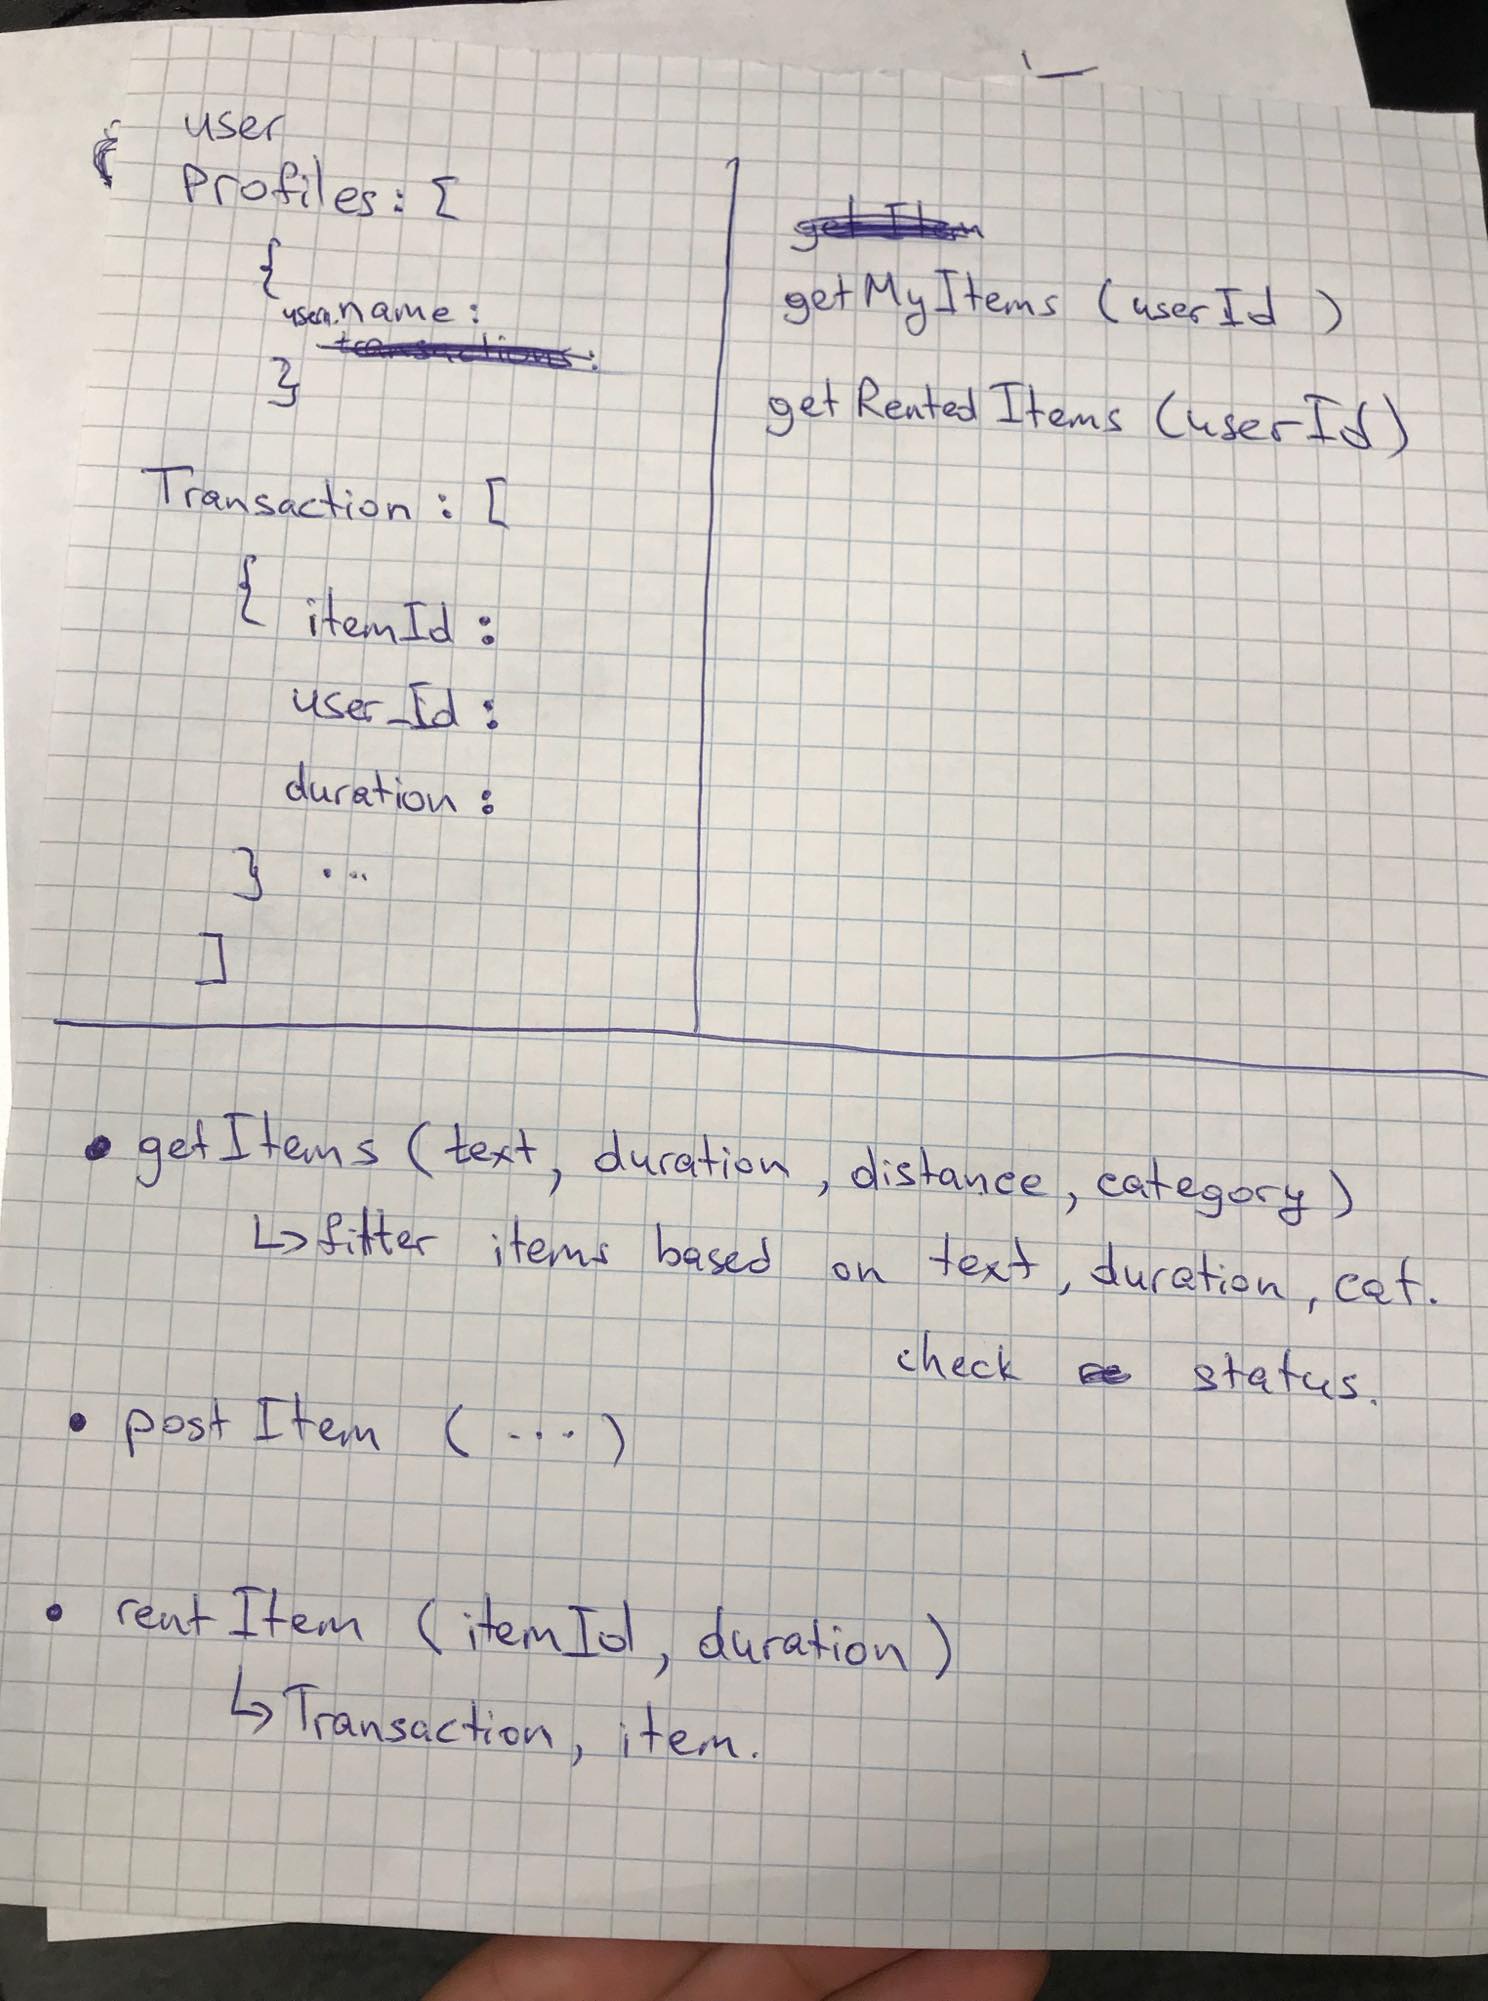 user
Profiles: [
{
username:
transactions:
}
Transaction: [
{ itemId:
user_Id:
duration:
} ...
]
get Item
getMyItems (userId )
getRentedItems (userId)
• getItems (text, duration, distance, category)
↳ filter items based on text, duration, cat.
check status.
• postItem (...)
• rentItem (itemId, duration)
↳ Transaction, item.